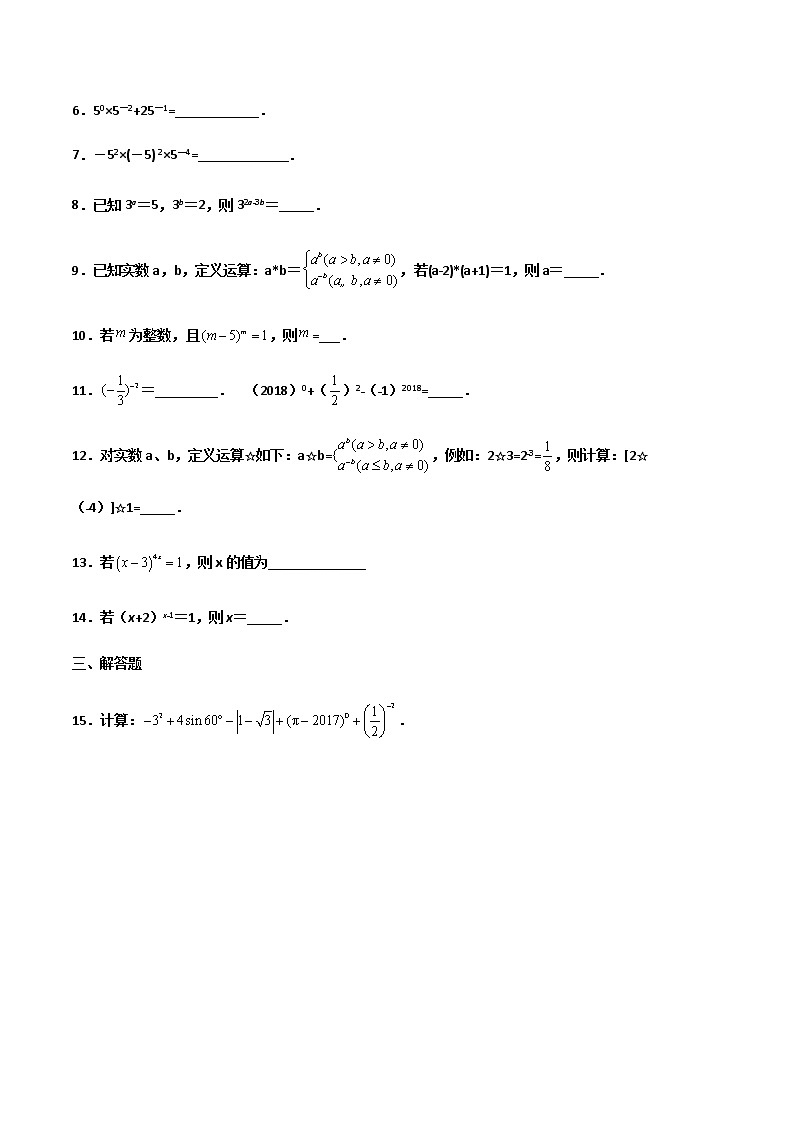 6．5⁰×5⁻²+25⁻¹=____________．
7．－5²×(－5)²×5⁻⁴=_____________．
8．已知 3ᵃ＝5，3ᵇ＝2，则 3²ᵃ⁻³ᵇ＝_____．
9．已知实数 a，b，定义运算：a*b＝{aᵇ(a > b, a ≠ 0) a⁻ᵇ(a„ b, a ≠ 0)，若(a-2)*(a+1)＝1，则 a＝_____．
10．若m为整数，且(m − 5)ᵐ = 1，则m=___．
11．(−1/3)⁻²＝_________．（2018）⁰+（1/2）²-（-1）²⁰¹⁸=_____．
12．对实数 a、b，定义运算☆如下：a☆b={aᵇ(a > b, a ≠ 0) a⁻ᵇ(a ≤ b, a ≠ 0)，例如：2☆3=2⁻³=1/8，则计算：[2☆
（-4）]☆1=_____．
13．若(x − 3)⁴ˣ = 1，则 x 的值为______________
14．若（x+2）ˣ⁻¹＝1，则 x＝_____．
三、解答题
15．计算：−3² + 4 sin 60° − |1 − √3| + (π − 2017)⁰ + (1/2)⁻²．